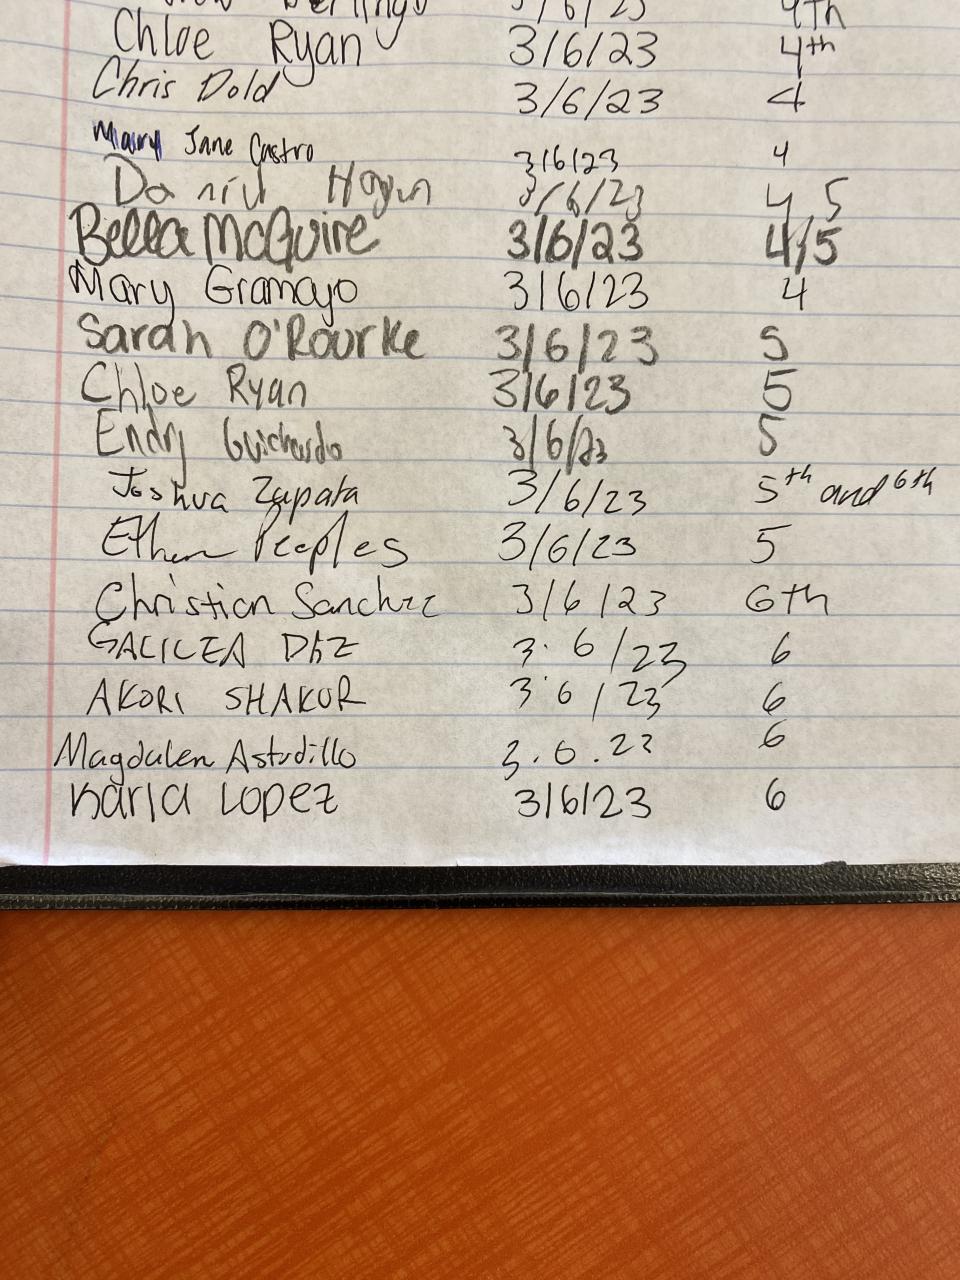 3/6/23 4th
Chloe Ryan 3/6/23 4th
Chris Dold 3/6/23 4
Mary Jane Castro 3/6/23 4
3/6/23 4 5
Bella McGuire 3/6/23 4/5
Mary Gramayo 3/6/23 4
Sarah O'Rourke 3/6/23 5
Chloe Ryan 3/6/23 5
Endry Guichardo 3/6/23 5
Joshua Zapata 3/6/23 5th and 6th
Ethan Peeples 3/6/23 5
Christian Sanchez 3/6/23 6th
GALILEA DIAZ 3.6/23 6
AKORI SHAKUR 3.6/23 6
Magdalen Astudillo 3.6.23 6
Karla Lopez 3/6/23 6